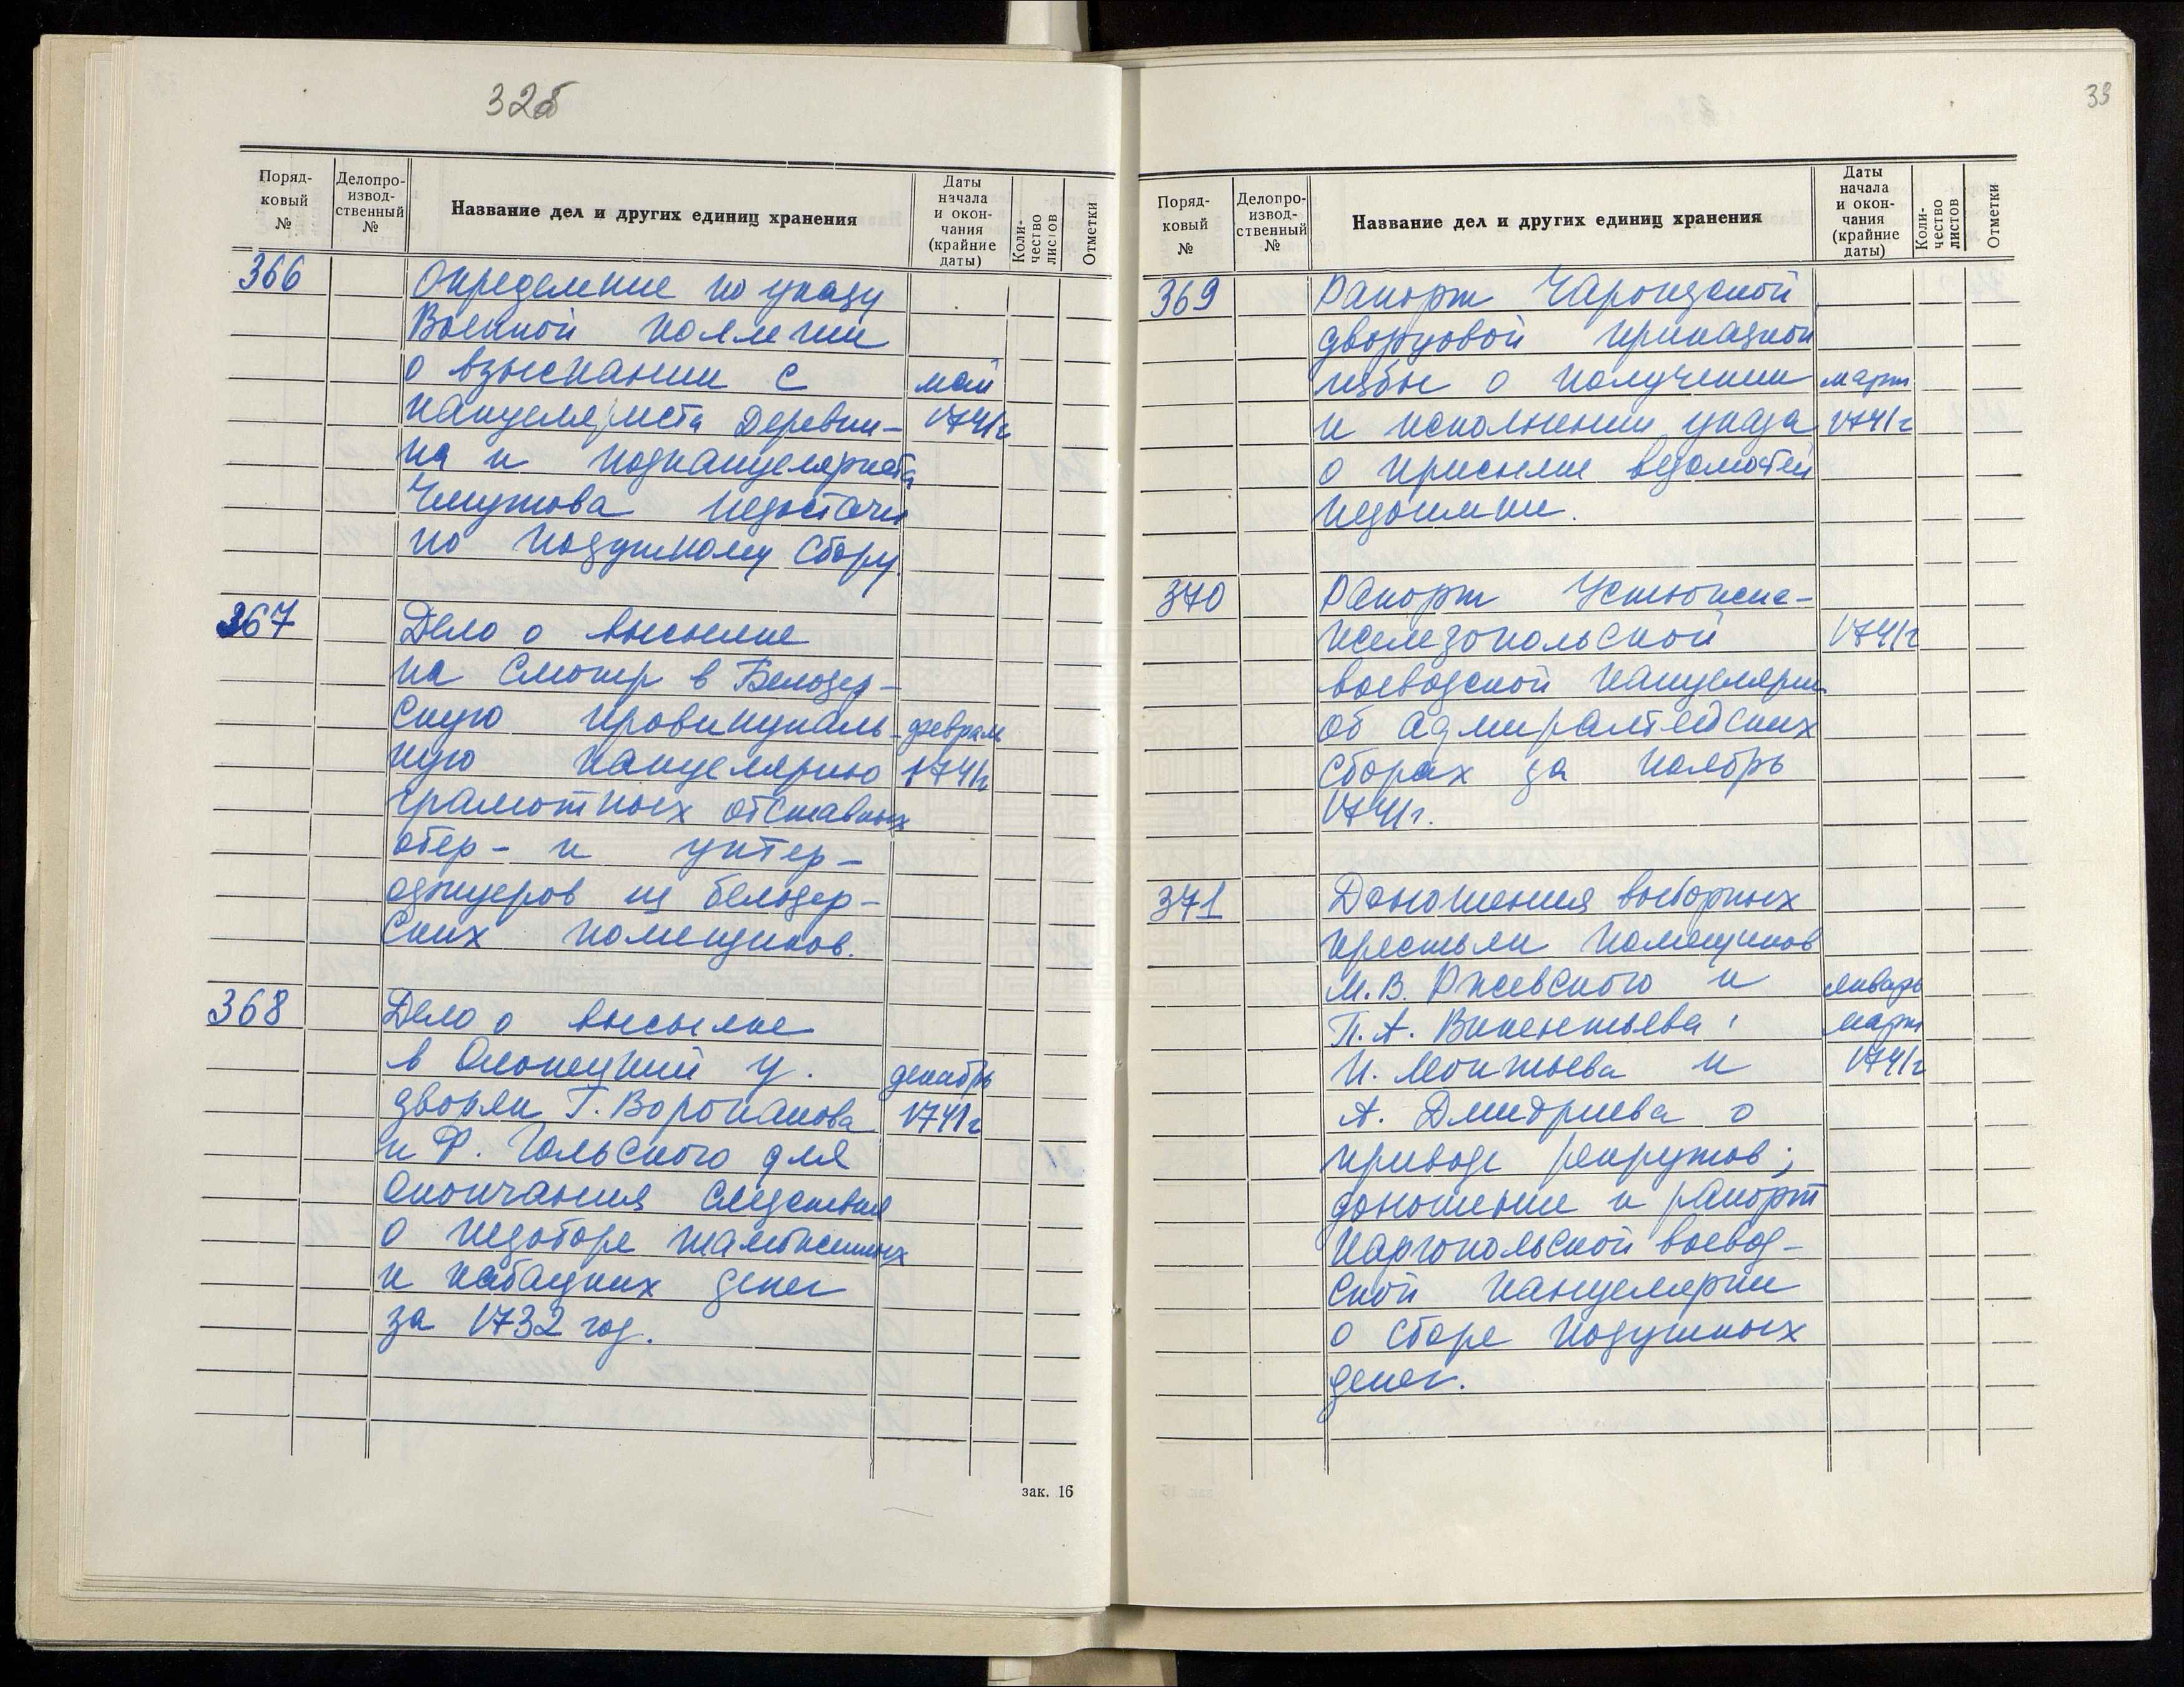 32б
Поряд-
ковый
№
Делопро-
извод-
ственный
№
Название дел и других единиц хранения
Даты
начала
и окон-
чания
(крайние
даты)
Коли-
чество
листов
Отметки
366
Определение по указу
Военной коллегии
о взыскании с
май
канцеляриста Деревни-
1741г
на и подканцеляриста
недостачи
по подушному сбору.
367
Дело о высылке
на смотр в Белозер-
скую провинциаль-
февраль
ную канцелярию
1741г
грамотных отставных
обер- и унтер-
офицеров из белозер-
ских помещиков.
368
Дело о высылке
в Олонецкий у.
декабрь
дворян Г. Воропанова
1741г
и Ф. Гольского для
окончания следствия
о недоборе таможенных
и кабацких денег
за 1732 год.
зак. 16
33
Поряд-
ковый
№
Делопро-
извод-
ственный
№
Название дел и других единиц хранения
Даты
начала
и окон-
чания
(крайние
даты)
Коли-
чество
листов
Отметки
369
Рапорт Чарондской
дворцовой приказной
избы о получении
март
и исполнении указа
1741г
о присылке ведомостей
недоимки.
370
Рапорт Устюжна-
железопольской
1741г
воеводской канцелярии
об адмиралтейских
сборах за ноябрь
1741г.
371
Доношения выборных
крестьян помещиков
М.В. Ржевского и
январь
П.А. Викентьева,
март
И. Леонтьева и
1741г
А. Дмидриева о
приводе рекрутов;
доношение и рапорт
Каргопольской воевод-
ской канцелярии
о сборе подушных
денег.